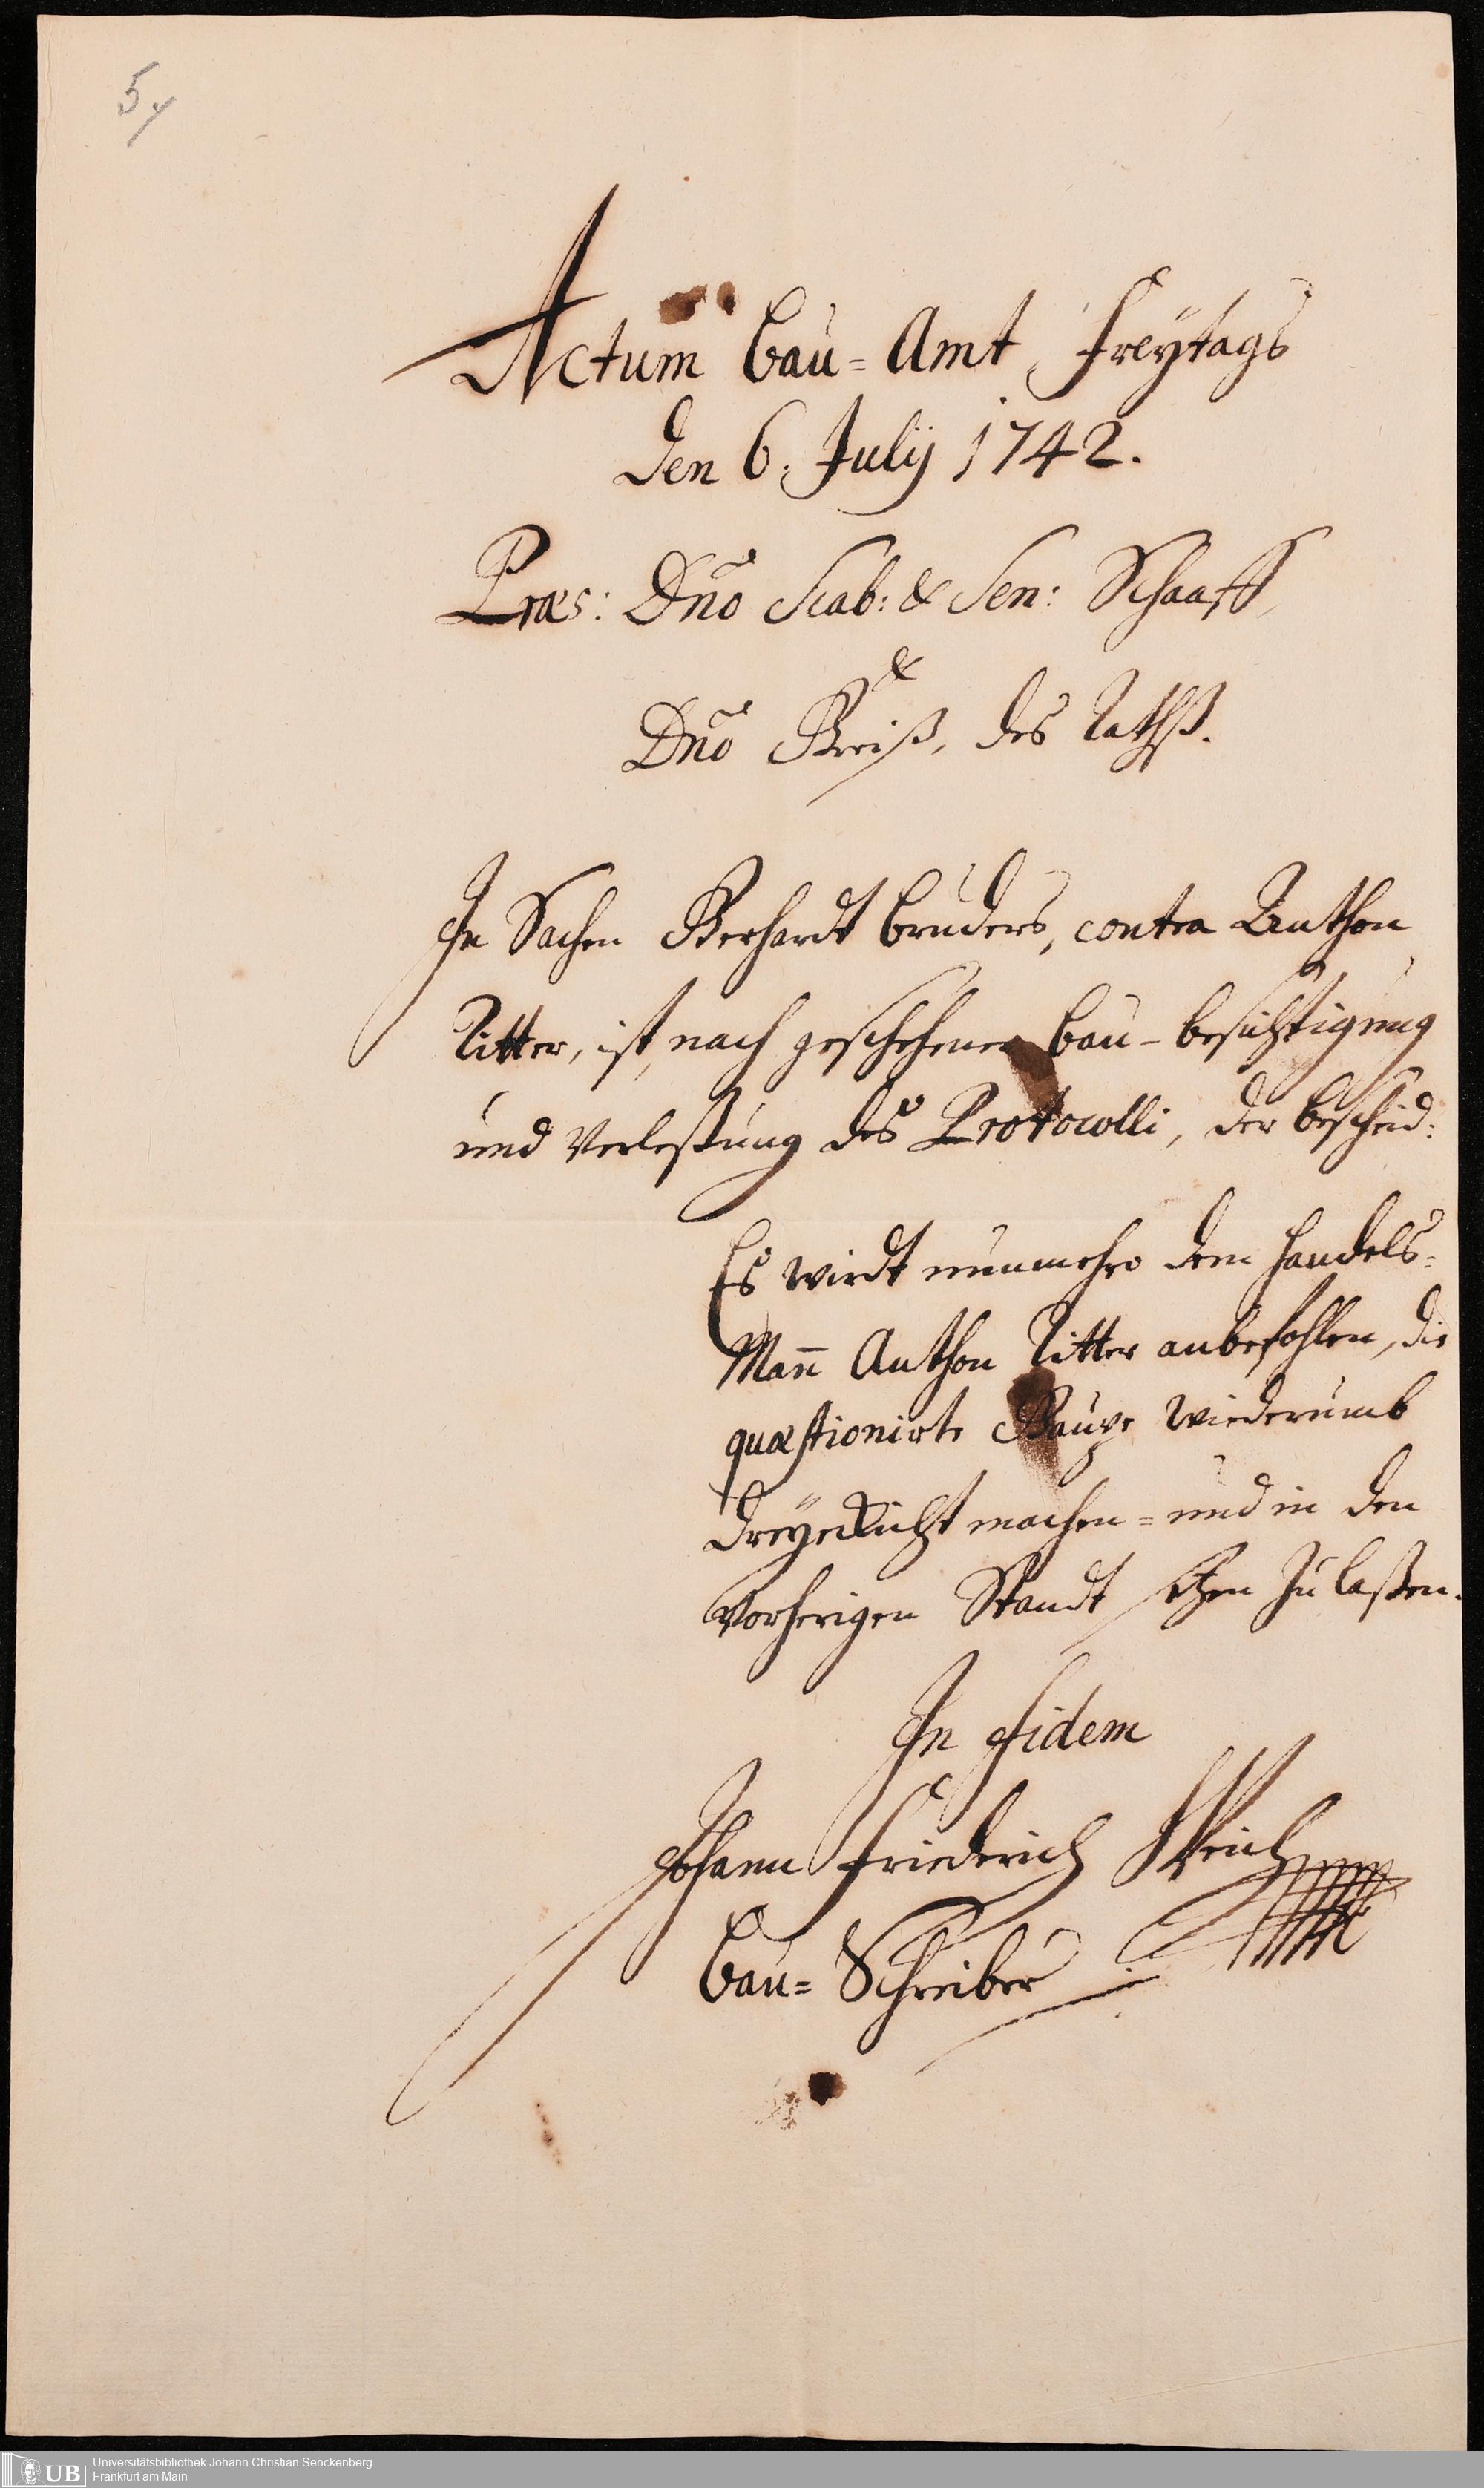 5,
Actum Bau=Amt, Freÿtags
den 6. Julÿ 1742.
Præs: Dño Scab: & Sen: Schaaff,
&
Dño Preiß, des Rathß.
In Sachen Gerhardt Bruders, contra Anthon
Ritter, ist, nach geschehener Bau-besichtigung
und Verleßung des Protocolli, der bescheid:
Es wirdt nunmehro dem Handels=
Mañ Anthon Ritter anbefohlen, die
quæstionirte wiederumb
dreÿeckicht machen= und in den
vorherigen Standt setzen zu laßen.
In fidem
Johann Friederich
Bau=Schreiber
UB
Universitätsbibliothek Johann Christian Senckenberg
Frankfurt am Main